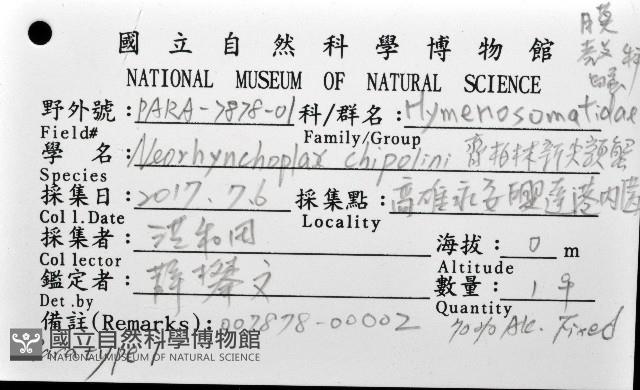 國立自然科學博物館
NATIONAL MUSEUM OF NATURAL SCIENCE
野外號：PARA-7878-01 科/群名：Hymenosomatidae
Field# Family/Group
學 名：Neorhynchoplax chipolini 齊柏林新尖額蟹
Species
採集日：2017.7.6 採集點：高雄永安興達港內
Coll.Date Locality
採集者：洪和田 海拔：0 m
Collector Altitude
鑑定者：文 數量：1♀
Det.by Quantity
備註(Remarks)：007878-00002 70% Alc. Fixed
國立自然科學博物館
NATIONAL MUSEUM OF NATURAL SCIENCE
膜